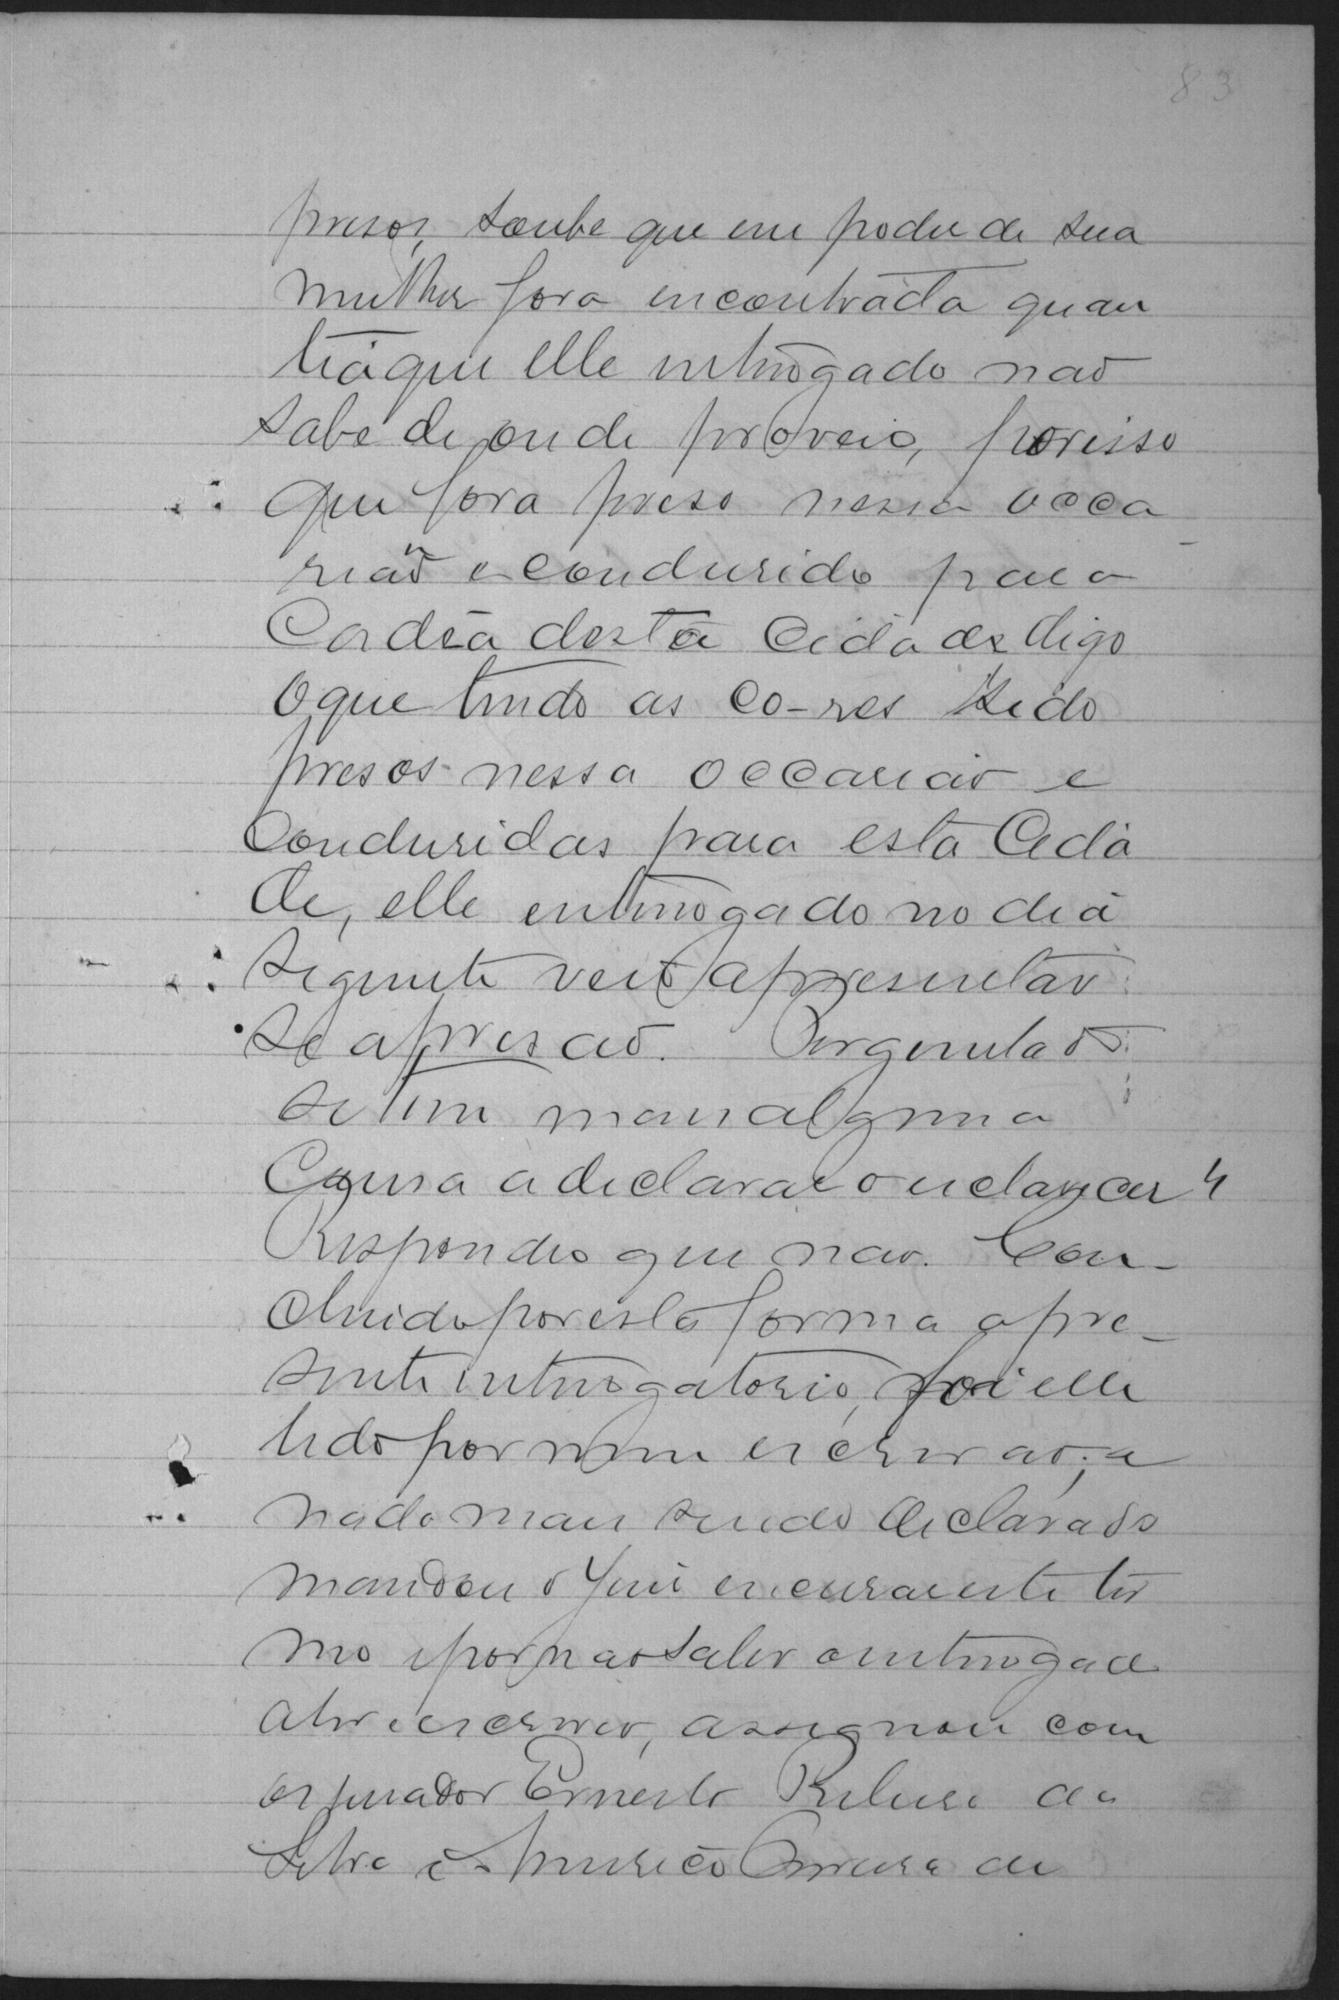 83
presos, soube que em poder de sua
mulher fora encontrada quan
tia que elle interrogado não
sabe de onde proveio, por isso
que fora preso nessa occa
sião e condusido para a
Cadêa desta Cidade digo
o que tendo as co-res sido
presos nessa occasião e
condusidas para esta Cida
de, elle interrogado no dia
seguinte veio apresentar
se a prisão. Perguntado
se tem mais alguma
Cousa a declarar ou esclarecer
Respondeo que não. Con-
cluido por esta forma o pre-
sente interrogatorio, foi elle
lido por mim escrivão, e
nada mais sendo declarado
mandou o Juiz encerrar este ter
mo e por não saber o interrogado
ler e escrever, assignou com
os jurador Ernesto da
Silva e Americo de